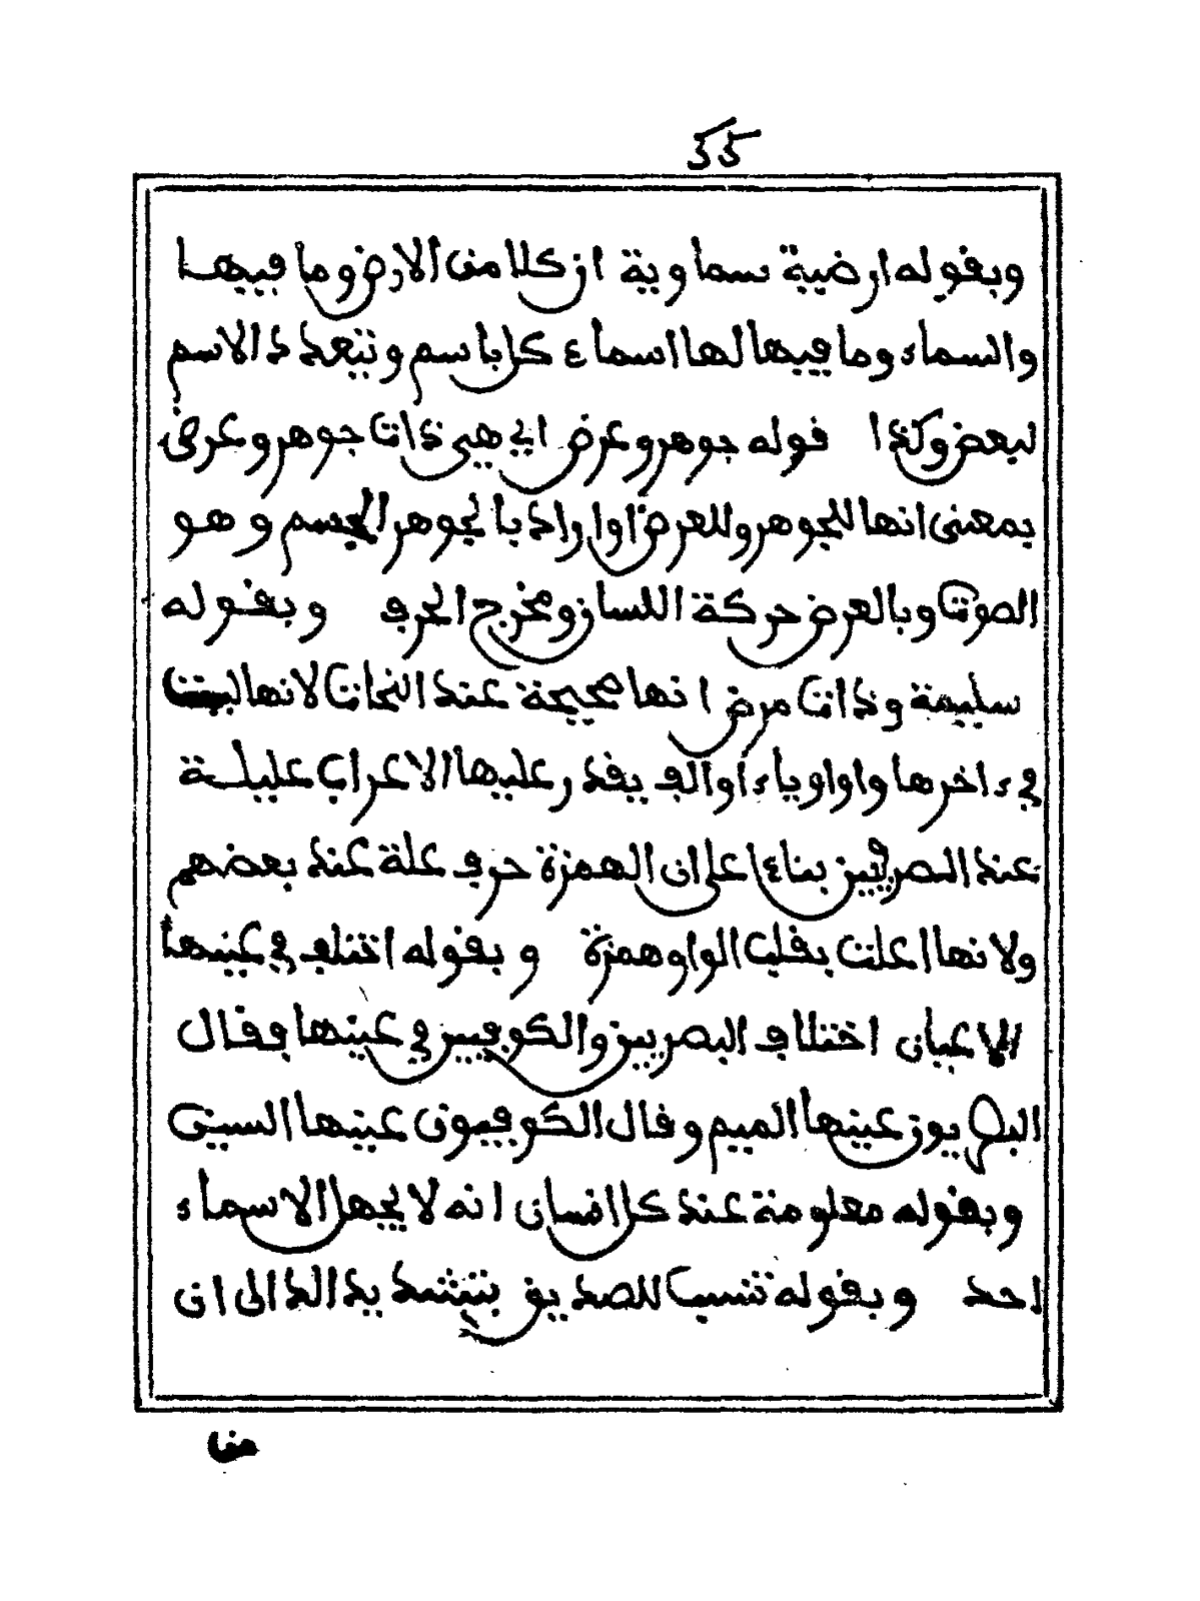 وبقوله ارضية سماوية ان كلا من الارض وما فيها
والسماء وما فيها لها اسماء كل باسم وتتعدد الاسم
لبعض وكذا قوله جوهر وعرض اي هي ذات جوهر وعرض
بمعنى انها للجوهر وللعرض او اراد بالجوهر الجسم وهو
الصوت وبالعرض حركة اللسان ومخرج الحرف وبقوله
سليمة وذات مرض انها صحيحة عند النحات لانها ليست
في ءاخرها واو او ياء او الف يقدر عليها الاعراب عليلة
عند الصرفيين بناء على ان الهمزة حرف علة عند بعضهم
ولانها اعلت بقلب الواو همزة وبقوله اختلف في عينها
الاعيان اختلاف البصريين والكوفيين في عينها فقال
البصريون عينها الميم وقال الكوفيون عينها السين
وبقوله معلومة عند كل انسان انه لا يجهل الاسماء
احد وبقوله تنسب للصديق بتشديد الدال ان
من